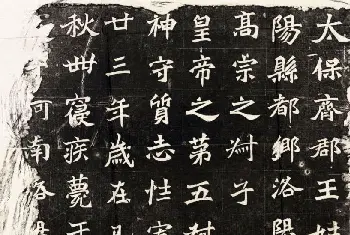 太保齊郡王姓
陽縣都鄉洛陽
高宗之叔子
皇帝之第五叔
神守質志性寬
廿三年歲在
秋卌寢疾薨于
河南洛